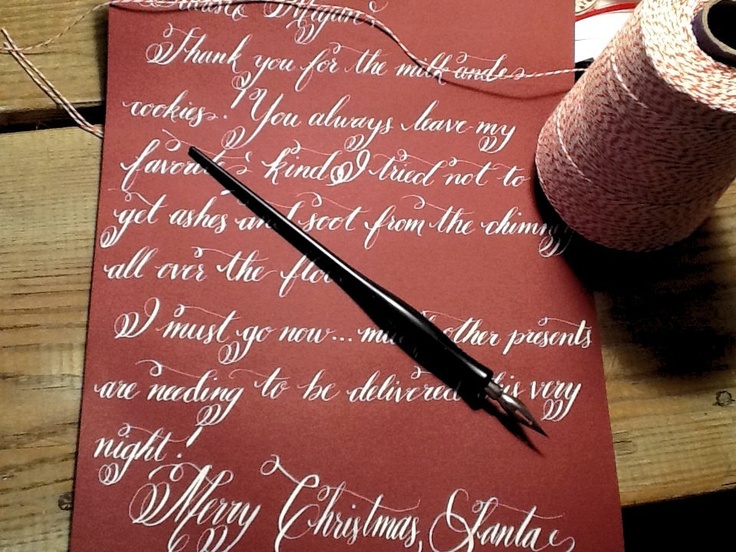 & Megan
Thank you for the milk and
cookies! You always leave my
favorite kind. I tried not to
get ashes and soot from the chimney
all over the floor
I must go now... many other presents
are needing to be delivered this very
night!
Merry Christmas, Santa